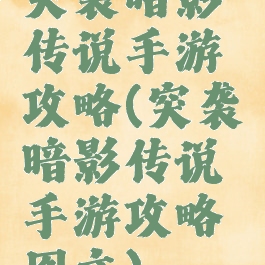 突袭暗影
传说手游
攻略(突袭
暗影传说
手游攻略
图文)